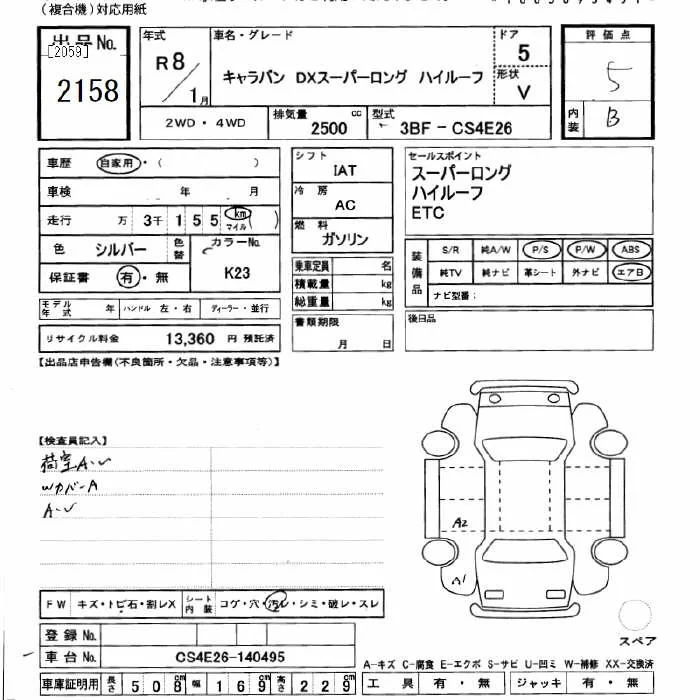 (複合機)対応用紙
出品No.
[2059]
2158
年式
R8/1月
車名・グレード
キャラバン DXスーパーロング ハイルーフ
ドア
5
形状
V
評価点
5
内装
B
2WD・4WD
排気量
2500 cc
型式
3BF-CS4E26
車歴 自家用・( )
車検 年 月
走行 万 3千 1 5 5 km マイル ( )
色 シルバー 色替 カラーNo. K23
保証書 有・無
モデル年式 年 ハンドル 左・右 ディーラー・並行
リサイクル料金 13,360 円 預託済
シフト
IAT
冷房
AC
燃料
ガソリン
乗車定員 名
積載量 kg
総重量 kg
書類期限
月 日
セールスポイント
スーパーロング
ハイルーフ
ETC
装備品
S/R 純A/W P/S P/W ABS
純TV 純ナビ 革シート 外ナビ エアB
ナビ型番:
後日品
【出品店申告欄(不良箇所・欠品・注意事項等)】
【検査員記入】
荷室A・U
WカバーA
A・U
A2
A1
スペア
FW キズ・トビ石・割レX シート内装 コゲ・穴・汚レ・シミ・破レ・スレ
登録No.
車台No. CS4E26-140495
車庫証明用 長さ 508 幅 169 高さ 229
A-キズ C-腐食 E-エクボ S-サビ U-凹ミ W-補修 XX-交換済
工具 有・無 ジャッキ 有・無